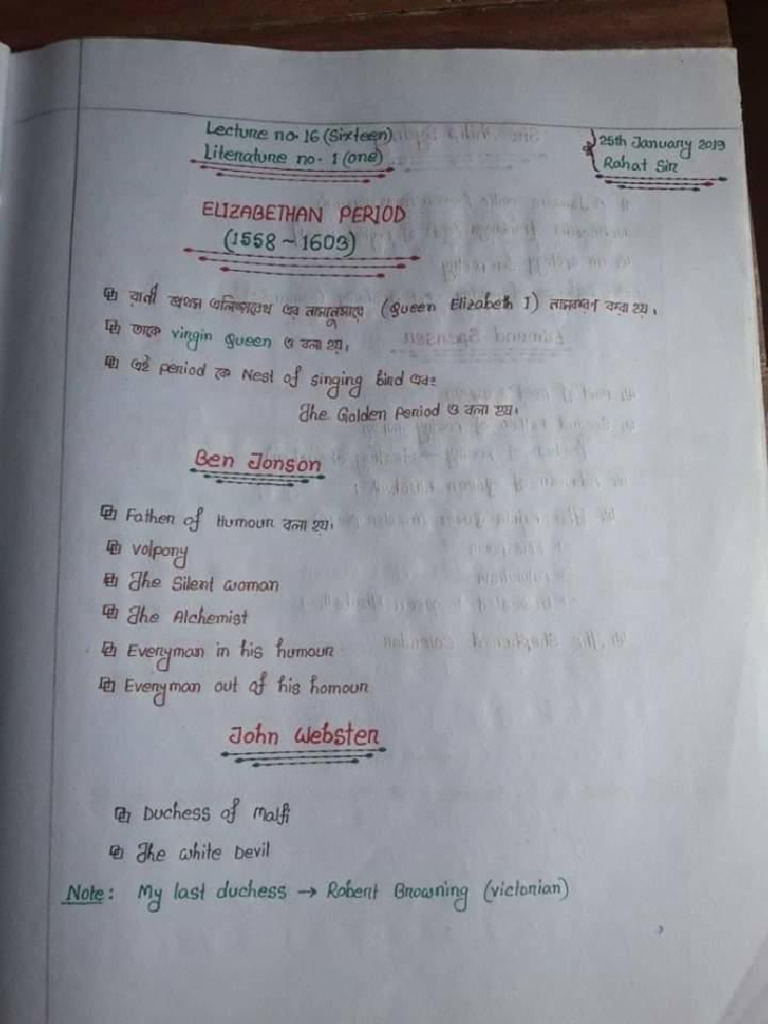 Lecture no. 16 (Sixteen)
Literature no- 1 (one)
25th January 2019
Rahat Sir
ELIZABETHAN PERIOD
(1558 ~ 1603)
রানী প্রথম এলিজাবেথ এর নামানুসারে (Queen Elizabeth I) নামকরণ করা হয়।
তাকে virgin Queen ও বলা হয়।
এই period কে Nest of singing bird এবং
The Golden Period ও বলা হয়।
Ben Jonson
Father of Humour বলা হয়।
volpony
The Silent woman
The Alchemist
Everyman in his humour
Everyman out of his homour
John Webster
Duchess of Malfi
The white Devil
Note: My last duchess → Robert Browning (victorian)